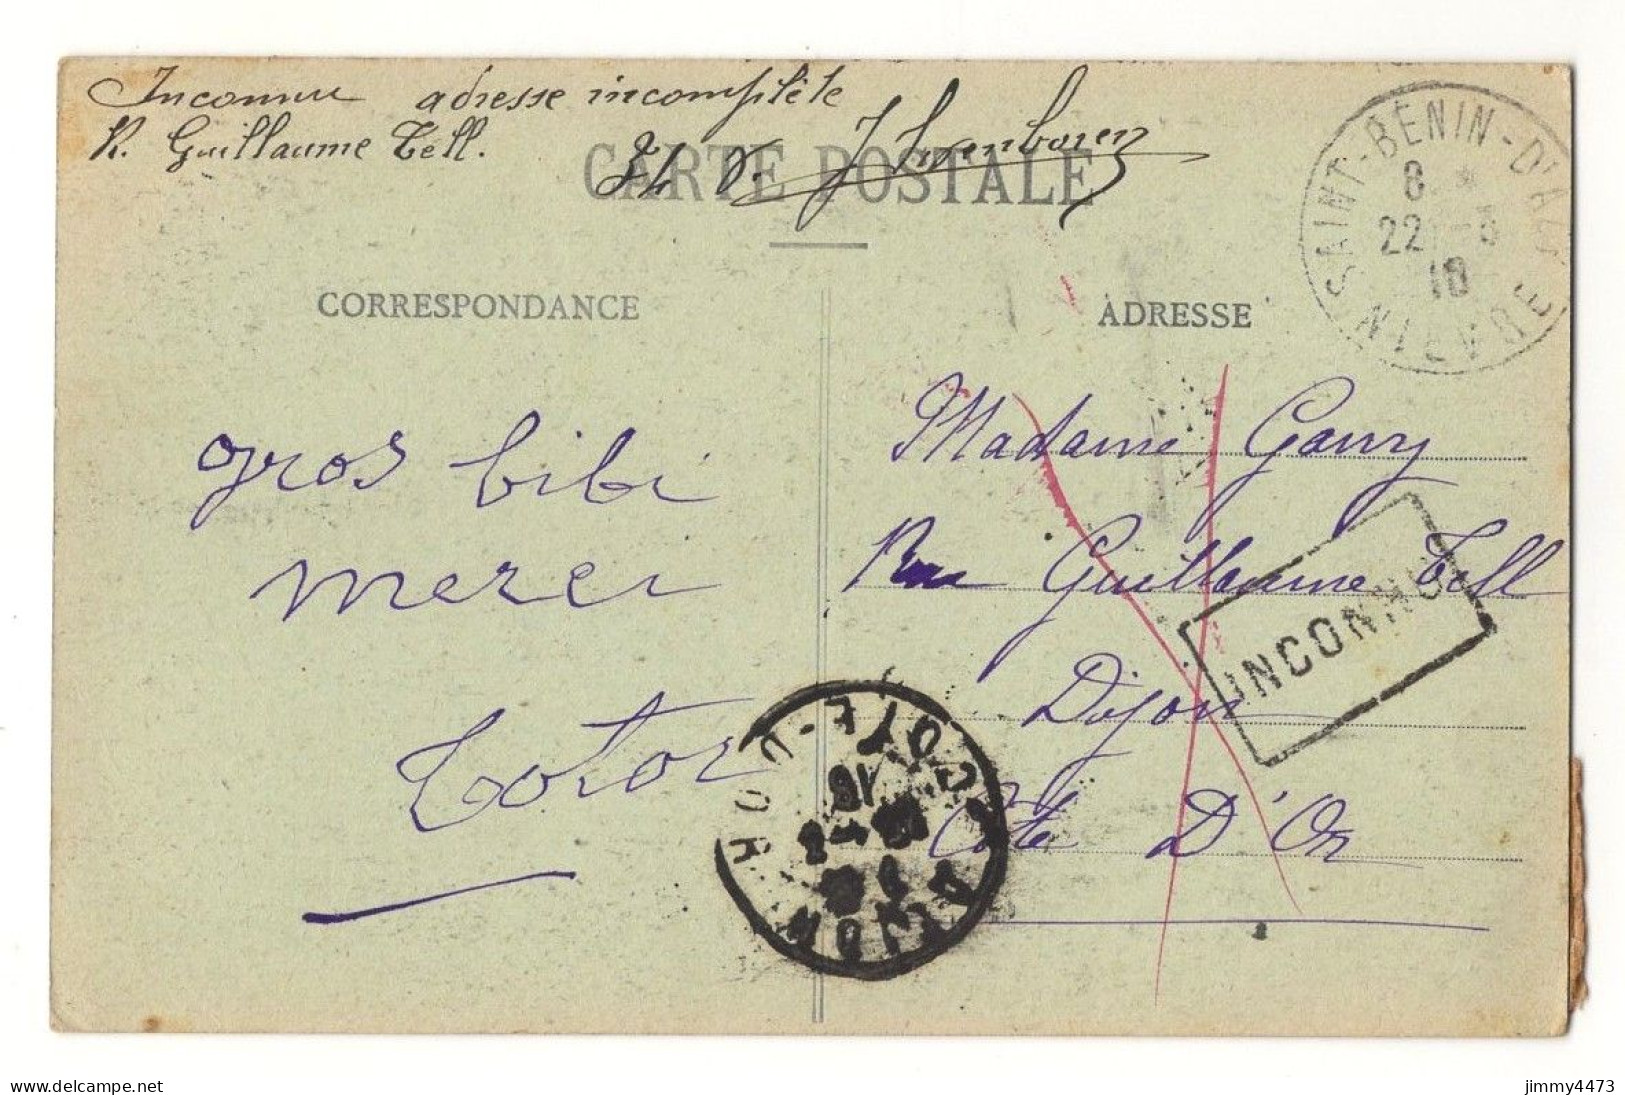 Inconnu adresse incomplète
R. Guillaume Tell.
CARTE POSTALE
SAINT-BENIN-D'AZY
8 *
22 - 3
18
NIEVRE
CORRESPONDANCE
ADRESSE
gros bibi
merci
Totor
Madame Gauvy
Rue Guillaume Tell
Dijon
Côte D'Or
INCONNU
DIJON
COTE-D'OR
delcampe.net
jimmy4473